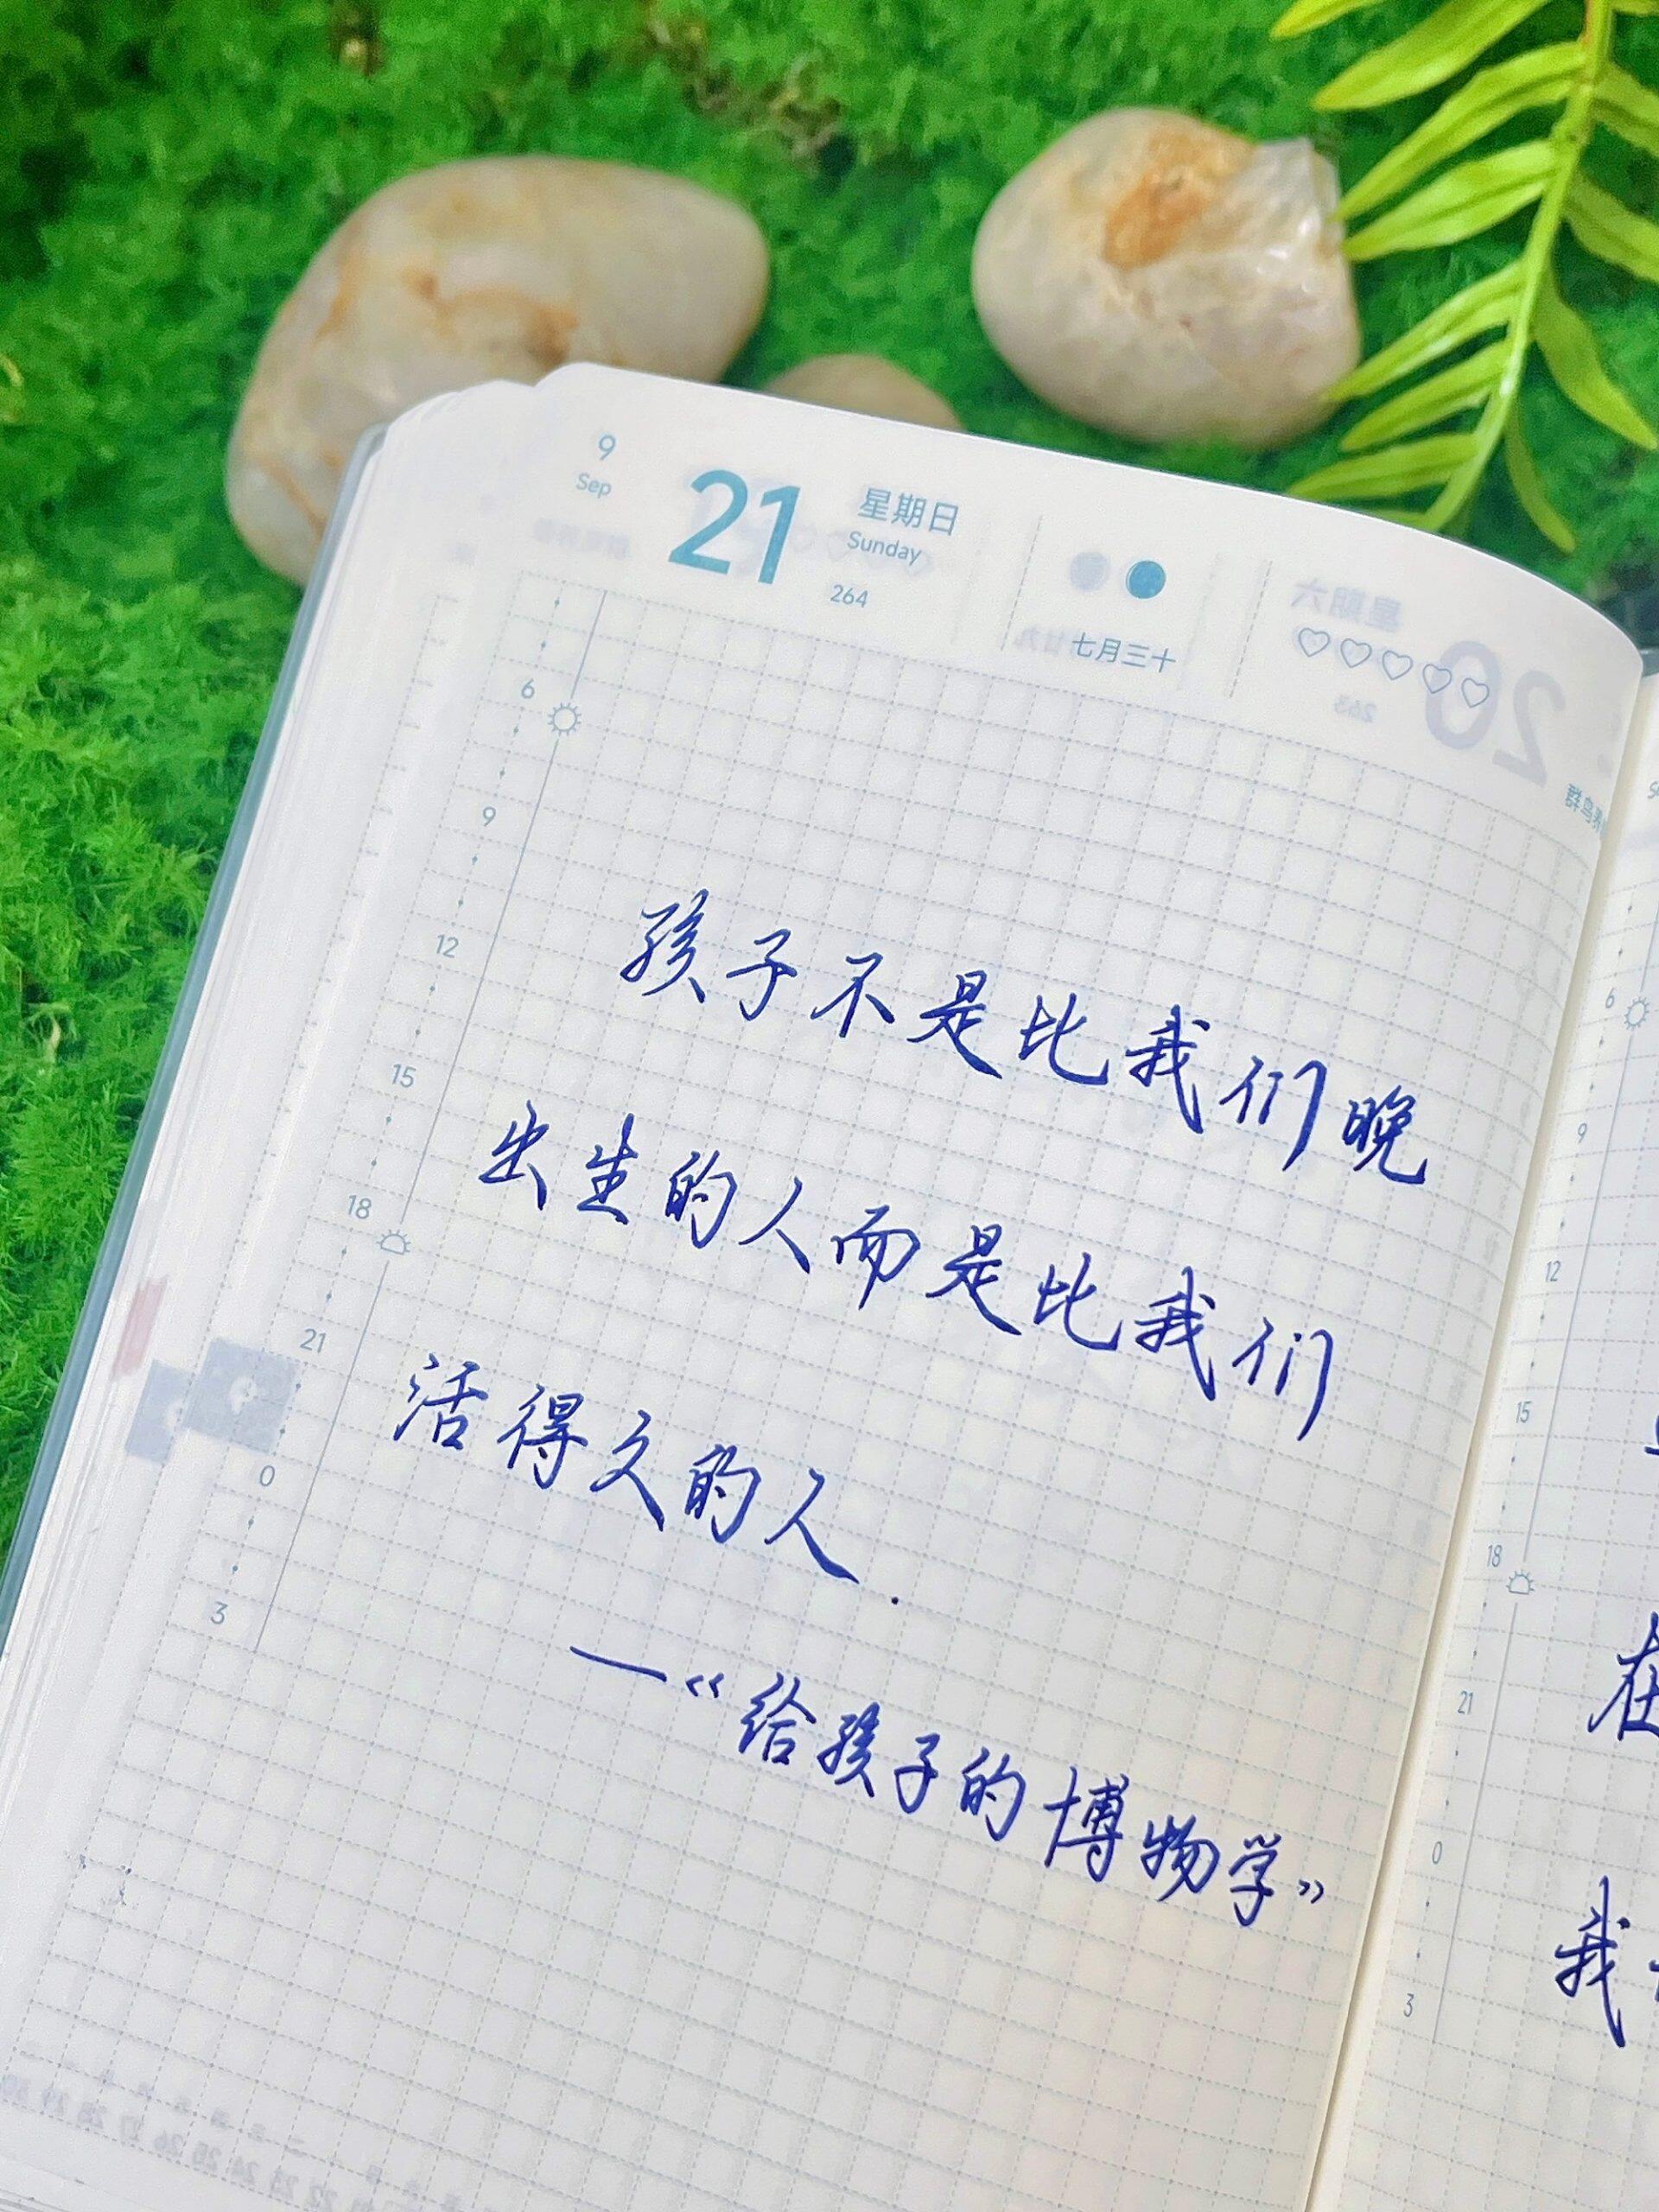 9
Sep
21
星期日
Sunday
264
七月三十
6
9
12
15
18
21
0
3
孩子不是比我们晚
出生的人而是比我们
活得久的人.
—《给孩子的博物学》
6
9
12
15
18
21
0
3
在
我